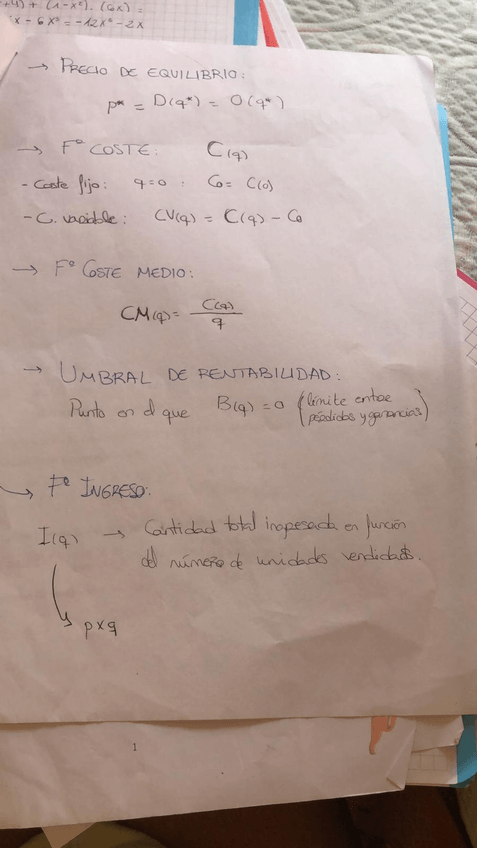 +4) + (1-x²). (6x) =
x - 6x³ = -12x² - 2x
→ PRECIO DE EQUILIBRIO:
p* = D(q*) = O(q*)
→ Fº COSTE: C(q)
- Coste fijo: q=0 : C₀ = C(0)
- C. variable: CV(q) = C(q) - C₀
→ Fº COSTE MEDIO:
CM(q) = C(q) / q
→ UMBRAL DE RENTABILIDAD:
Punto en el que B(q) = 0 (límite entre
pérdidas y ganancias)
→ Fº INGRESO:
I(q) → Cantidad total ingresada en función
del número de unidades vendidas.
p x q
1